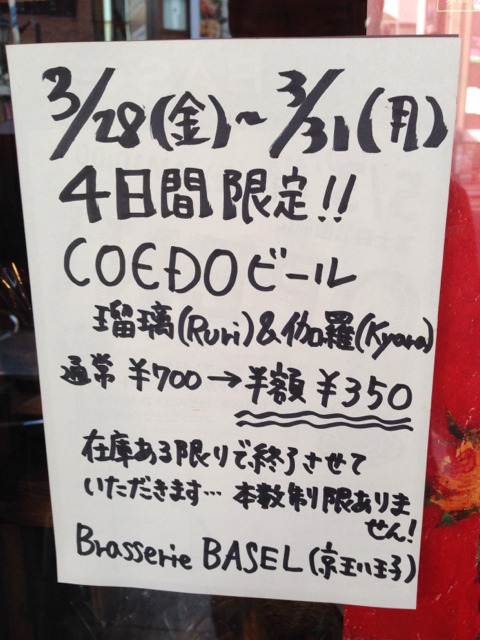 3/28(金)~3/31(月)
4日間限定!!
COEDOビール
瑠璃(Ruri)&伽羅(Kyara)
通常 ¥700→半額 ¥350
在庫ある限りで終了させて
いただきます… 本数制限ありま
せん!
Brasserie BASEL(京王八王子)